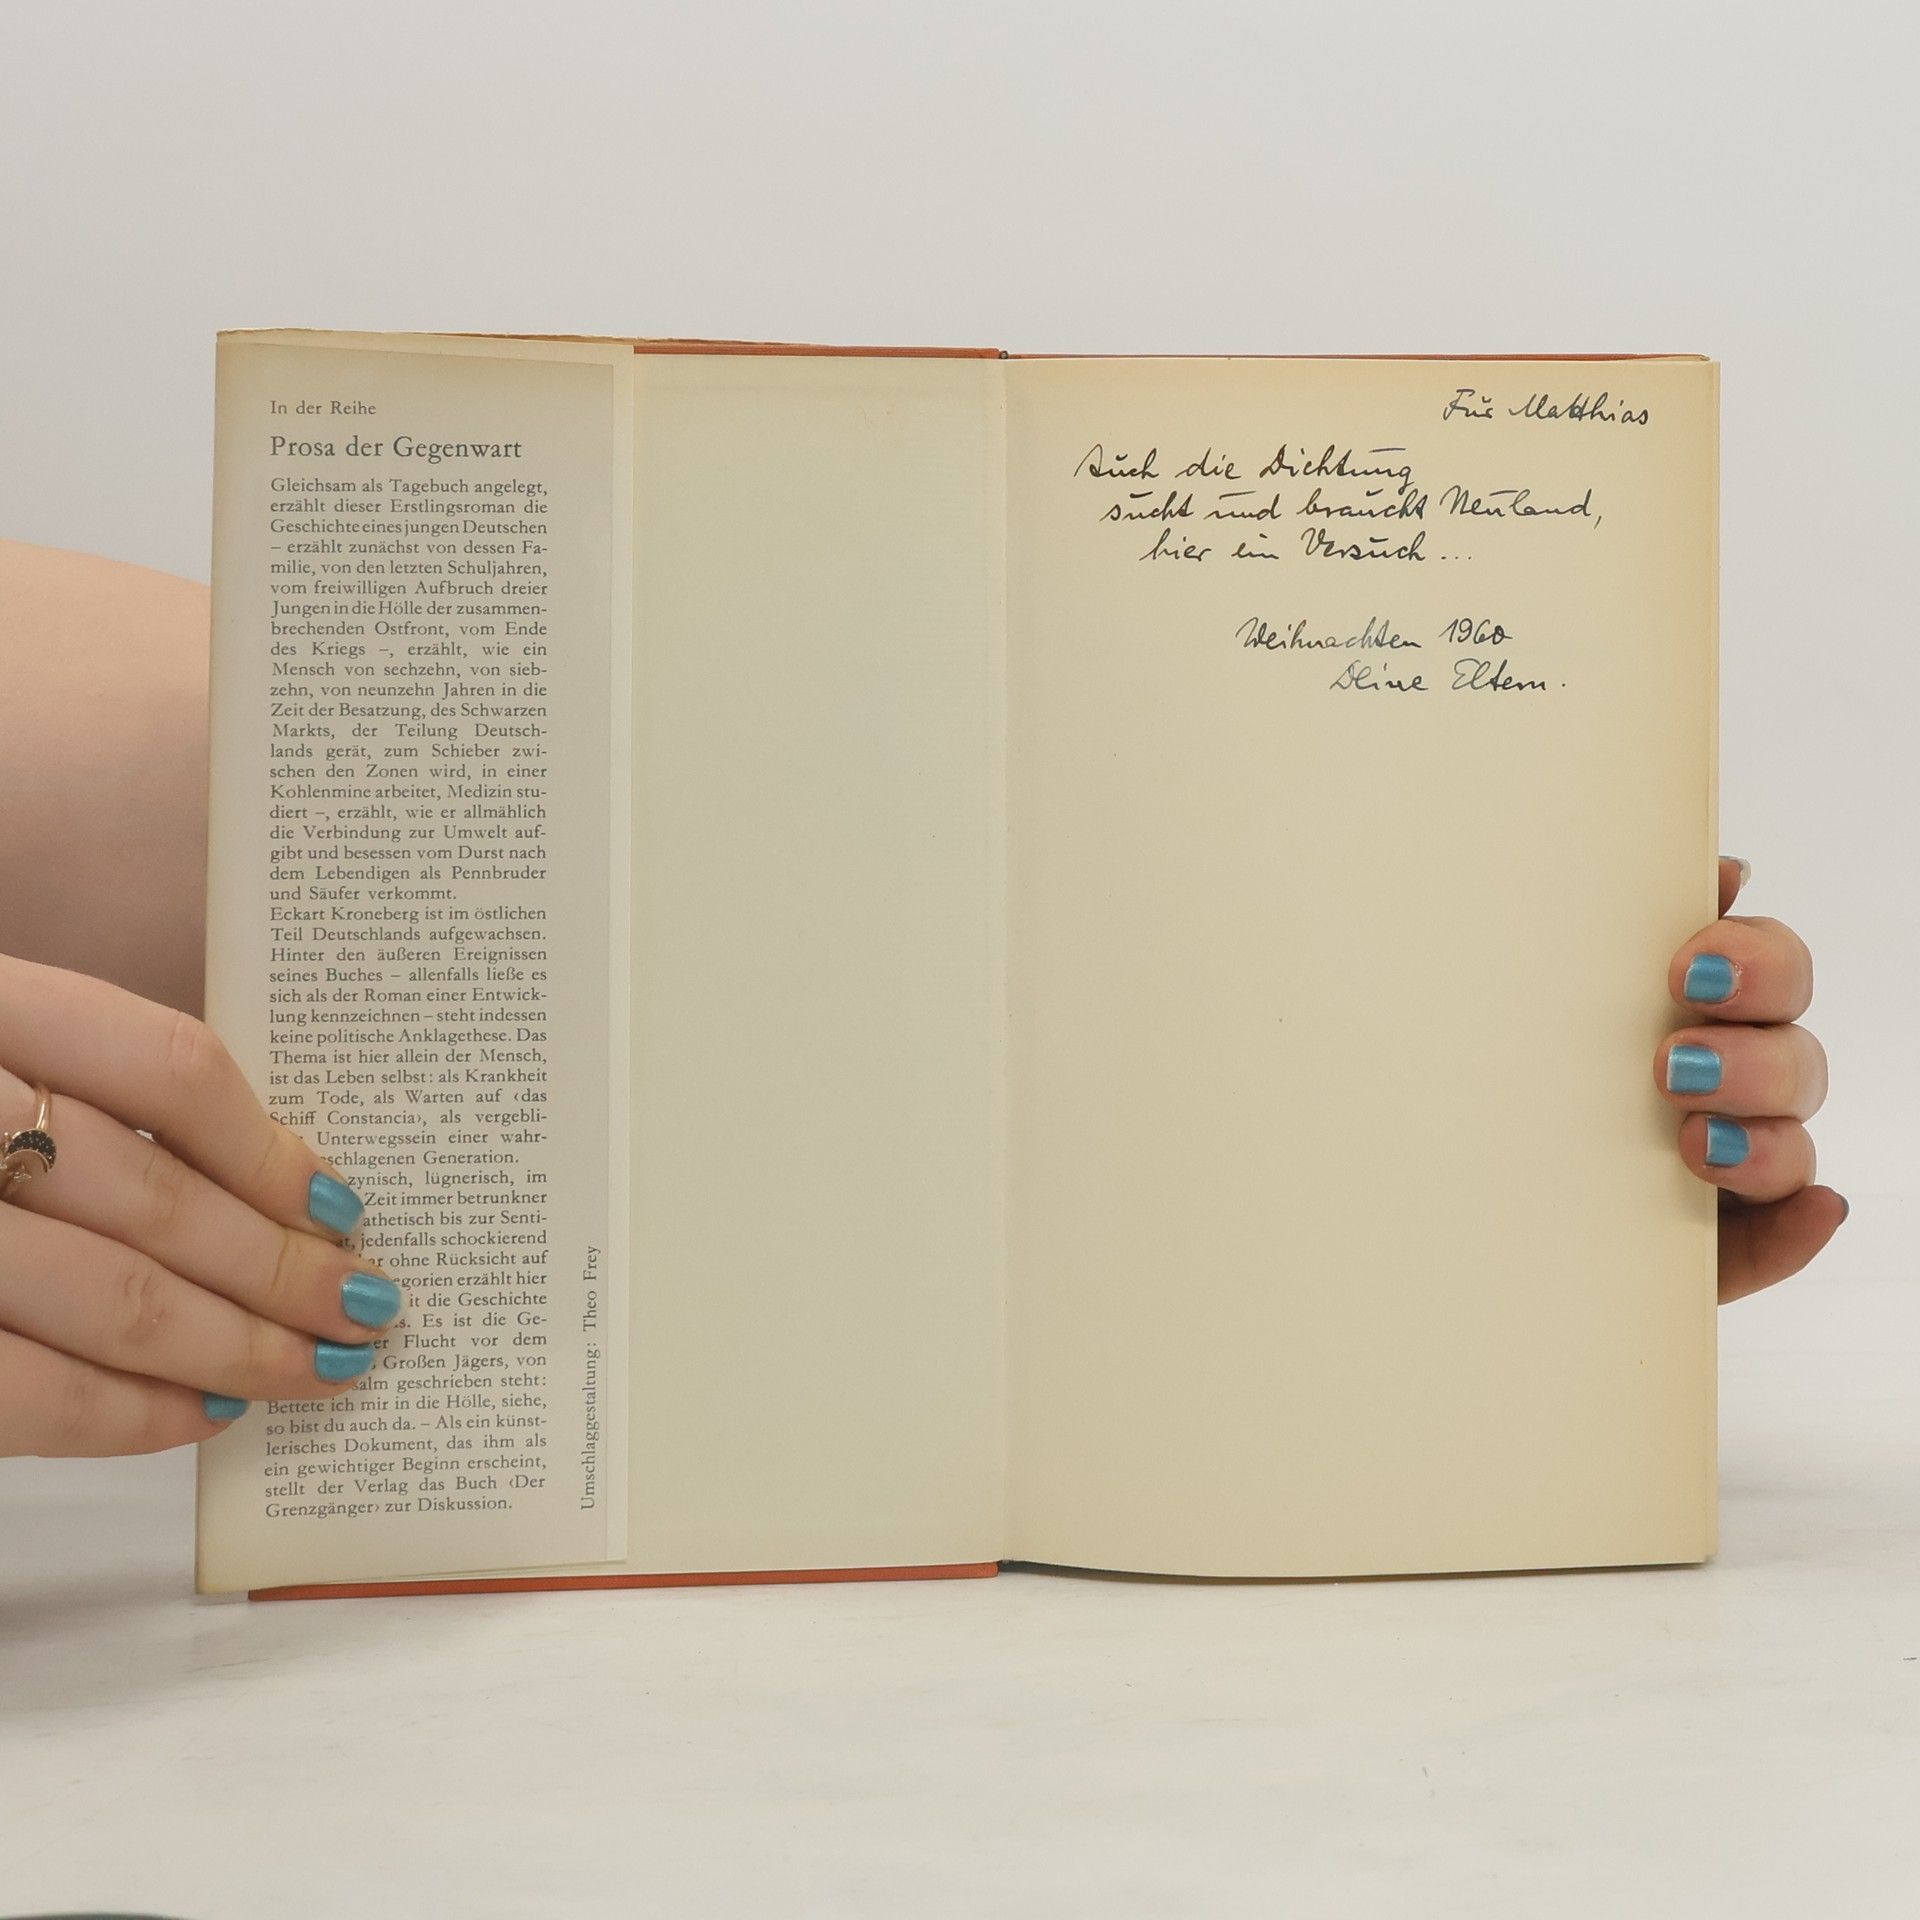 In der Reihe
Prosa der Gegenwart
Gleichsam als Tagebuch angelegt,
erzählt dieser Erstlingsroman die
Geschichte eines jungen Deutschen
– erzählt zunächst von dessen Fa-
milie, von den letzten Schuljahren,
vom freiwilligen Aufbruch dreier
Jungen in die Hölle der zusammen-
brechenden Ostfront, vom Ende
des Kriegs –, erzählt, wie ein
Mensch von sechzehn, von sieb-
zehn, von neunzehn Jahren in die
Zeit der Besatzung, des Schwarzen
Markts, der Teilung Deutsch-
lands gerät, zum Schieber zwi-
schen den Zonen wird, in einer
Kohlenmine arbeitet, Medizin stu-
diert –, erzählt, wie er allmählich
die Verbindung zur Umwelt auf-
gibt und besessen vom Durst nach
dem Lebendigen als Pennbruder
und Säufer verkommt.
Eckart Kroneberg ist im östlichen
Teil Deutschlands aufgewachsen.
Hinter den äußeren Ereignissen
seines Buches – allenfalls ließe es
sich als der Roman einer Entwick-
lung kennzeichnen – steht indessen
keine politische Anklagethese. Das
Thema ist hier allein der Mensch,
ist das Leben selbst: als Krankheit
zum Tode, als Warten auf ‹das
Schiff Constancia›, als vergebli-
Unterwegssein einer wahr-
schlagenen Generation.
zynisch, lügnerisch, im
Zeit immer betrunkner
athetisch bis zur Senti-
at, jedenfalls schockierend
ar ohne Rücksicht auf
egorien erzählt hier
it die Geschichte
s. Es ist die Ge-
er Flucht vor dem
Großen Jägers, von
salm geschrieben steht:
Bettete ich mir in die Hölle, siehe,
so bist du auch da. – Als ein künst-
lerisches Dokument, das ihm als
ein gewichtiger Beginn erscheint,
stellt der Verlag das Buch ‹Der
Grenzgänger› zur Diskussion.
Umschlaggestaltung: Theo Frey
Für Matthias
Auch die Dichtung
sucht und braucht Neuland,
hier ein Versuch ...
Weihnachten 1960
Deine Eltern.